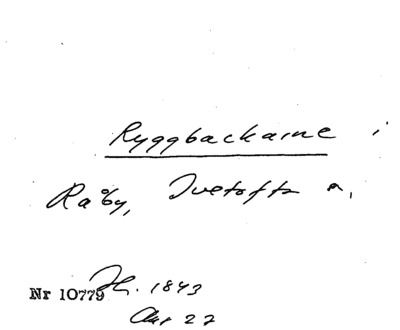 Ryggbackarne i
Råby, Ivetofta s,
Nr 10779 Jh. 1843
Akt 27